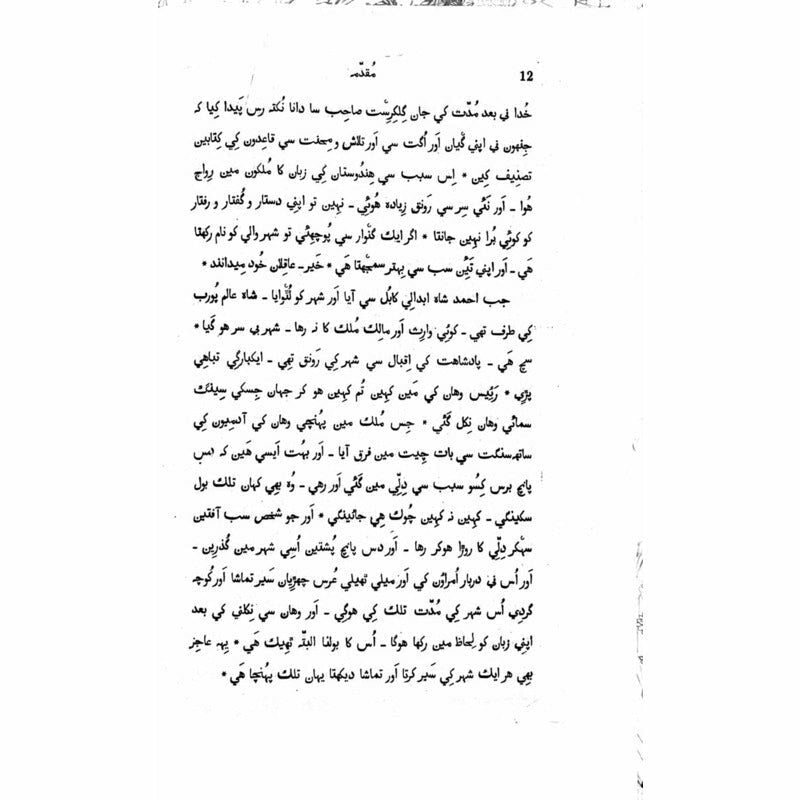 12
مُقدّمہ
خُدا ني بعد مُدّت کي جان گِلکرِسٹ صاحِب سا دانا نُکتہ رس پَیدا کِیا کہ
جِنھون ني اپني گیان اَور اُگت سي اَور تلاش و مِحنت سي قاعدون کي کِتابین
تصنِیف کین * اِس سبب سي هِندوستان کي زبان کا مُلکون مین رِواج
هُوا ـ اَور نَئي سِر سي رَونق زِیادہ هُوئي ـ نہین تو اپني دستار و گُفتار و رفتار
کو کوئي بُرا نہین جانتا * اگر ایك گنوار سي پُوچھئي تو شہر والي کو نام رکھتا
هَي ـ اَور اپني تَئِین سب سي بِہتر سمجھتا هَي * خَیر ـ عاقلان خُود میدانند *
جب احمد شاہ ابدالي کابُل سي آیا اَور شہر کو لُٹوایا ـ شاہ عالم پُورب
کي طرف تھي ـ کوئي وارِث اَور مالِك مُلك کا نہ رہا ـ شہر بي سر هو گَیا *
سچ هَي ـ پادشاهت کي اِقبال سي شہر کي رَونق تھي ـ ایکبارگي تباهي
پڑي * رَئِیس وهان کي مَین کہین تُم کہین هو کر جہان جِسکي سِینگ
سمائي وهان نِکل گَئي * جِس مُلك مین پہُنچي وهان کي آدمیون کي
ساتھ سنگت سي بات چِیت مین فرق آیا ـ اَور بہُت اَیسي هَین کہ دس
پانچ برس کِسو سبب سي دِلّي مین گَئي اَور رهي ـ وُہ بھي کہان تلك بول
سکینگي ـ کہین نہ کہین چُوك هي جائینگي * اَور جو شخص سب آفتین
سہکر دِلّي کا روڑا هوکر رہا ـ اَور دس پانچ پُشتین اُسي شہر مین گُذرین ـ
اَور اُس ني دربار اُمراؤن کي اَور میلي ٹھیلي عُرس چھڑیان سَیر تماشا اَور کُوچہ
گردي اُس شہر کي مُدّت تلك کي هوگي ـ اَور وهان سي نِکلني کي بعد
اپني زبان کو لِحاظ مین رکھا هوگا ـ اُس کا بولنا البتّہ ٹھِیك هَي * یِہ عاجِز
بھي هر ایك شہر کي سَیر کرتا اَور تماشا دیکھتا یہان تلك پہُنچا هَي *